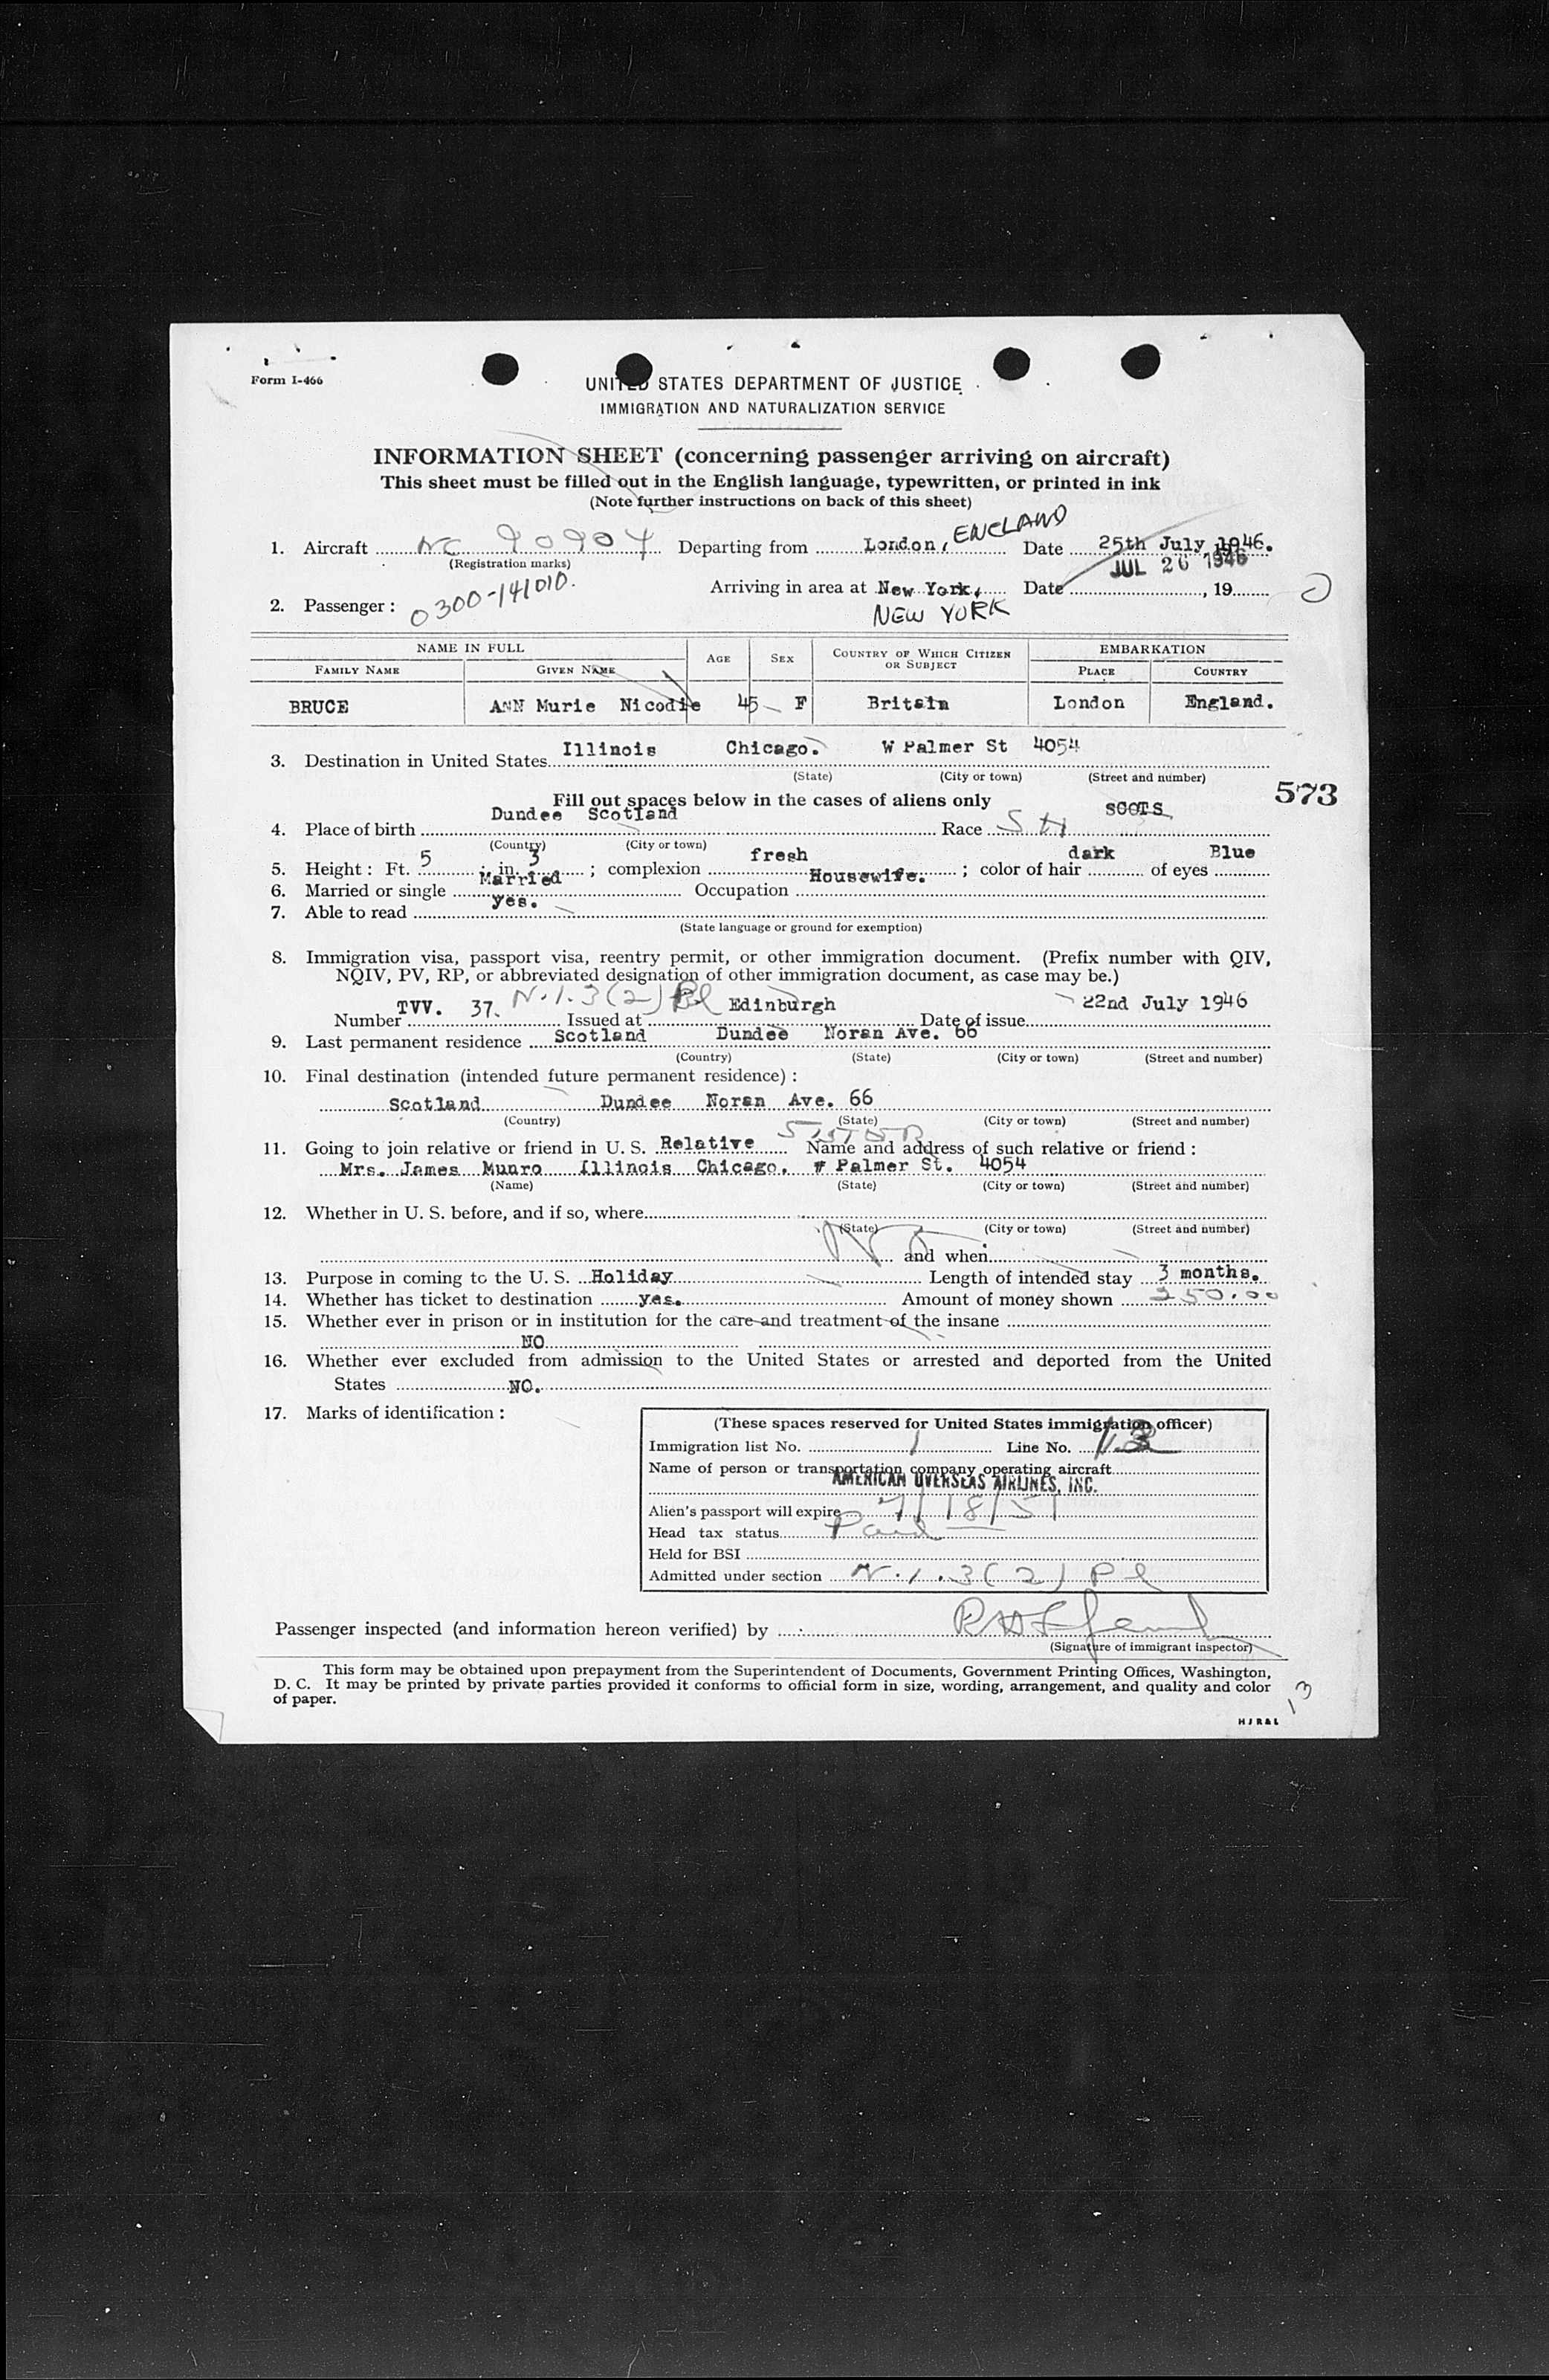 Form I-466
UNITED STATES DEPARTMENT OF JUSTICE
IMMIGRATION AND NATURALIZATION SERVICE
INFORMATION SHEET (concerning passenger arriving on aircraft)
This sheet must be filled out in the English language, typewritten, or printed in ink
(Note further instructions on back of this sheet)
1. Aircraft NC 90904 Departing from London, ENGLAND Date 25th July, 1946.
(Registration marks) JUL 26 1946
Arriving in area at New York, Date , 19
2. Passenger : 0300-141010. NEW YORK
NAME IN FULL AGE SEX COUNTRY OF WHICH CITIZEN OR SUBJECT EMBARKATION
FAMILY NAME GIVEN NAME PLACE COUNTRY
BRUCE ANN Murie Nicodie 45 F Britain London England.
Illinois Chicago. W Palmer St 4054
3. Destination in United States
(State) (City or town) (Street and number)
573
Fill out spaces below in the cases of aliens only
Dundee Scotland SCOTS
4. Place of birth Race
(Country) (City or town)
5. Height : Ft. 5 ; in. 3 ; complexion fresh ; color of hair dark of eyes Blue
6. Married or single Married Occupation Housewife.
7. Able to read yes.
(State language or ground for exemption)
8. Immigration visa, passport visa, reentry permit, or other immigration document. (Prefix number with QIV,
NQIV, PV, RP, or abbreviated designation of other immigration document, as case may be.)
Number TVV. 37. N.1.3(2) Pl Issued at Edinburgh Date of issue 22nd July 1946
9. Last permanent residence Scotland Dundee Noran Ave. 66
(Country) (State) (City or town) (Street and number)
10. Final destination (intended future permanent residence) :
Scotland Dundee Noran Ave. 66
(Country) (State) (City or town) (Street and number)
SISTER
11. Going to join relative or friend in U. S. Relative Name and address of such relative or friend :
Mrs. James Munro Illinois Chicago. W Palmer St. 4054
(Name) (State) (City or town) (Street and number)
12. Whether in U. S. before, and if so, where
(State) (City or town) (Street and number)
and when
13. Purpose in coming to the U. S. Holiday Length of intended stay 3 months.
14. Whether has ticket to destination yes. Amount of money shown 250.00
15. Whether ever in prison or in institution for the care and treatment of the insane
NO
16. Whether ever excluded from admission to the United States or arrested and deported from the United
States NO.
17. Marks of identification :
(These spaces reserved for United States immigration officer)
Immigration list No. 1 Line No. 13
Name of person or transportation company operating aircraft
AMERICAN OVERSEAS AIRLINES, INC.
Alien's passport will expire 7/18/51
Head tax status Paid
Held for BSI
Admitted under section N.1.3(2) Pl
Passenger inspected (and information hereon verified) by
(Signature of immigrant inspector)
This form may be obtained upon prepayment from the Superintendent of Documents, Government Printing Offices, Washington,
D. C. It may be printed by private parties provided it conforms to official form in size, wording, arrangement, and quality and color
of paper.
13
HJR&L